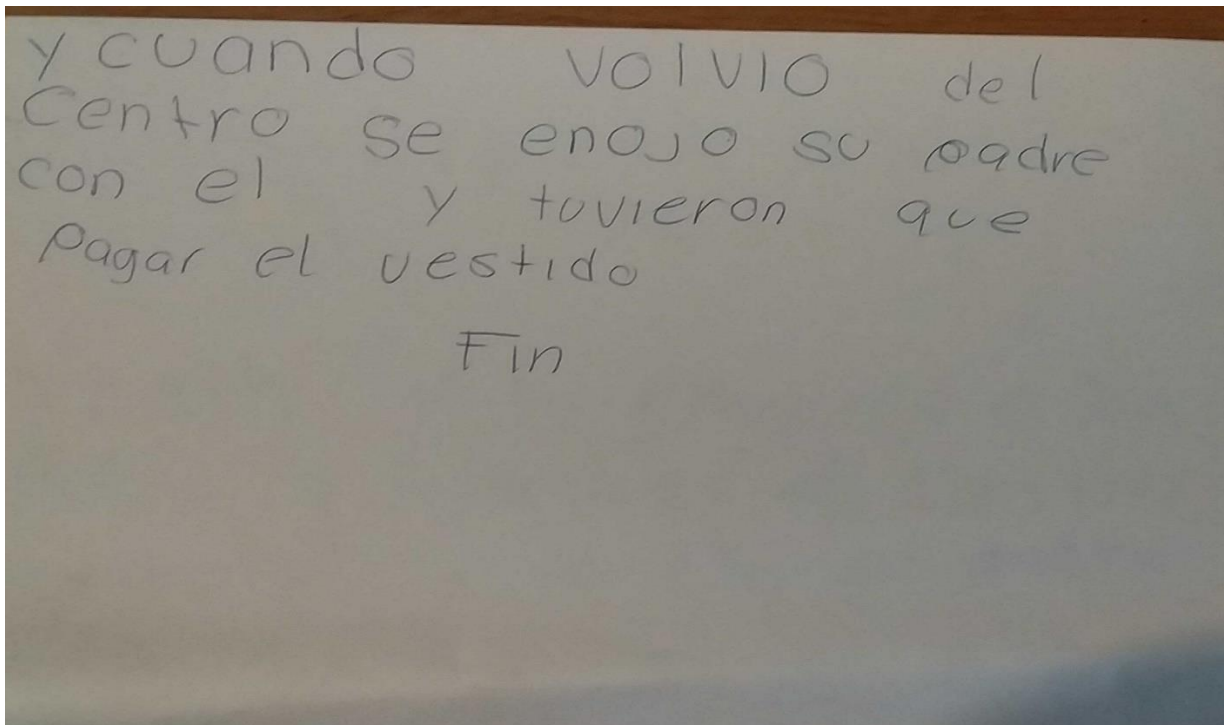 y cuando volvio del
Centro se enojo su padre
con el y tuvieron que
Pagar el vestido
Fin